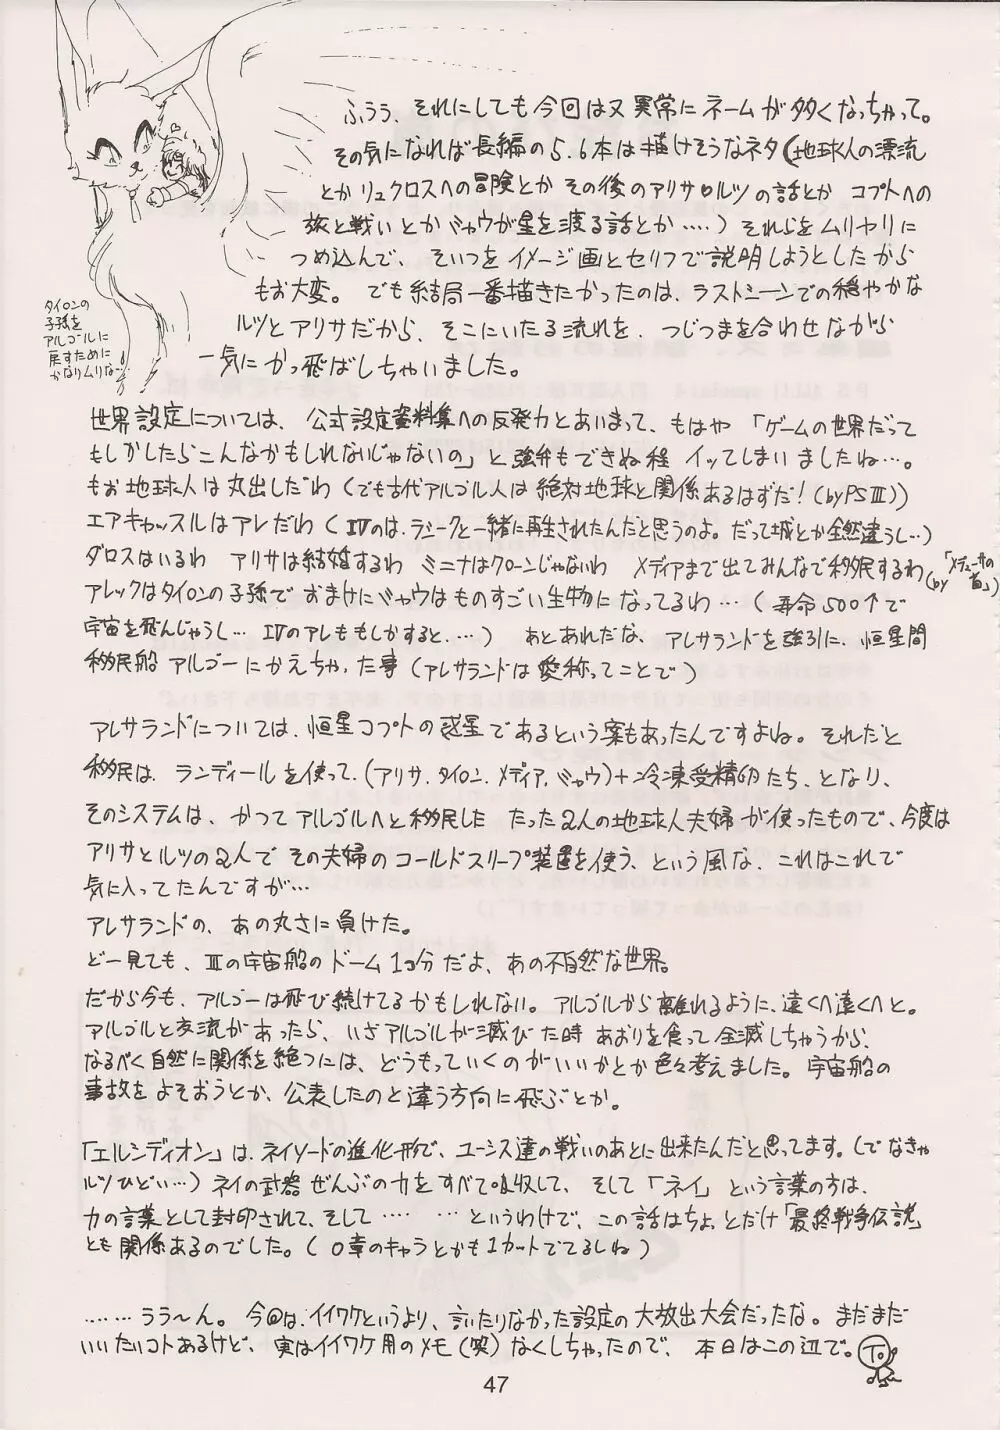 ふうぅ、それにしても今回は又異常にネームが多くなっちゃって。
その気になれば長編の5.6本は描けそうなネタ(地球人の漂流
とかリュクロスへの冒険とかその後のアリサ・ルツの話とか コプトへの
旅と戦いとかミャウが星を渡る話とか‥‥)それらをムリヤリに
つめ込んで、そいつをイメージ画とセリフで説明しようとしたから
もお大変。でも結局一番描きたかったのは、ラストシーンでの穏やかな
ルツとアリサだから、そこにいたる流れを、つじつまを合わせながら
一気にかっ飛ばしちゃいました。
タイロンの
子孫を
アルゴールに
戻すために
かなりムリな…!!
世界設定については、公式設定資料集への反発力とあいまって、もはや「ゲームの世界だって
もしかしたらこんなかもしれないじゃないの」と強弁もできぬ程 イッてしまいましたね…。
もお地球人は丸出しだわ(でも古代アルゴル人は絶対地球と関係あるはずだ!(byPSⅢ))
エアキャッスルはアレだわ(Ⅳのは、ラシークと一緒に再生されたんだと思うのよ。だって城とか全然違うし…)
ダロスはいるわ アリサは結婚するわ ミニナはクローンじゃないわ メディアまで出てみんなで移民するわ(by「メデューサの首」)
アレックはタイロンの子孫で おまけにミャウはものすごい生物になってるわ…(寿命500↑で
宇宙を飛んじゃうし… Ⅳのアレももしかすると‥‥) あとあれだな、アレサランドを強引に、恒星間
移民船アルゴーにかえちゃった事(アレサランドは愛称ってことで)
アレサランドについては、恒星コプトの惑星であるという案もあったんですよね。それだと
移民は、ランディールを使って、(アリサ、タイロン、メディア、ミャウ)+冷凍受精卵たち、となり、
そのシステムは、かつてアルゴルへと移民した たった2人の地球人夫婦が使ったもので、今度は
アリサとルツの2人で その夫婦のコールドスリープ装置を使う、という風な、これはこれで
気に入ってたんですが…
アレサランドの、あの丸さに負けた。
どー見ても、Ⅲの宇宙船のドーム1コ分だよ、あの不自然な世界。
だから今も、アルゴーは飛び続けてるかもしれない。アルゴルから離れるように、遠くへ遠くへと。
アルゴルと交流があったら、いざアルゴルが滅びた時あおりを食って全滅しちゃうから、
なるべく自然に関係を絶つには、どうもっていくのがいいかとか色々考えました。宇宙船の
事故をよそおうとか、公表したのと違う方向に飛ぶとか。
「エルシディオン」は、ネイソードの進化形で、ユーシス達の戦いのあとに出来たんだと思ってます。(でなきゃ
ルツひどい…)ネイの武器ぜんぶの力をすべて吸収して、そして「ネイ」という言葉の方は、
力の言葉として封印されて、そして‥‥ …というわけで、この話はちょっとだけ「最終戦争伝説」
とも関係あるのでした。(0章のキャラとかも1カットでてるしね)
……うう～ん。今回は、イイワケというより、言いたりなかった設定の大放出大会だったな。まだまだ
いいたいコトあるけど、実はイイワケ用のメモ(笑)なくしちゃったので、本日はこの辺で。To
47